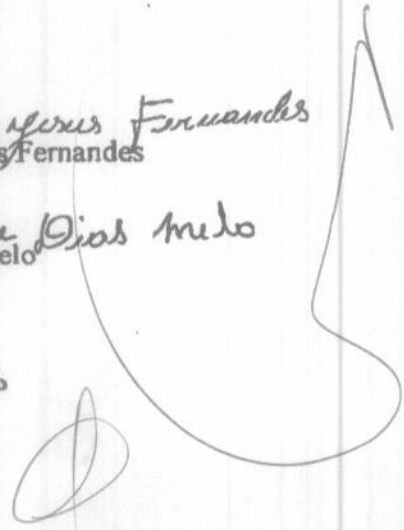 Jesus Fernandes
s Fernandes
Dias Melo
elo